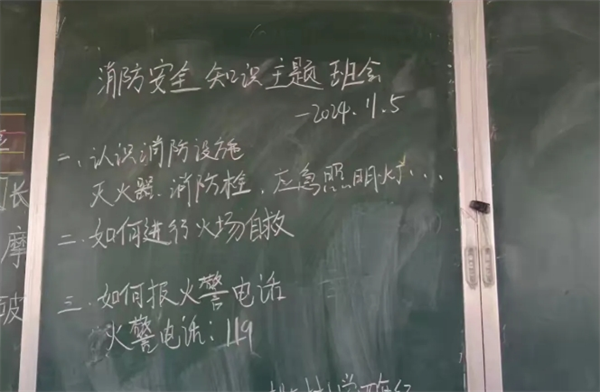 消防安全知识主题班会
—2024.11.5
一、认识消防设施
灭火器.消防栓.应急照明灯...
二.如何进行火场自救
三.如何报火警电话
火警电话:119
长
摩
破